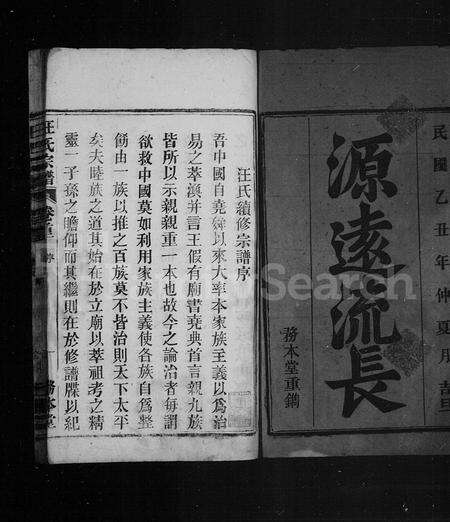 民國乙丑年仲夏月
源遠流長
務本堂重鐫
汪氏續修宗譜序
吾中國自堯舜以來大率本家族主義以為治
易之萃渙并言王假有廟書堯典首言親九族
皆所以示親親重一本也故今之論治者每謂
欲救中國莫如利用家族主義使各族自為整
飭由一族以推之百族莫不皆治則天下太平
矣夫睦族之道其始在於立廟以萃祖考之精
靈一子孫之瞻仰而其繼則在於修譜牒以紀
汪氏宗譜
序
務本堂
Search